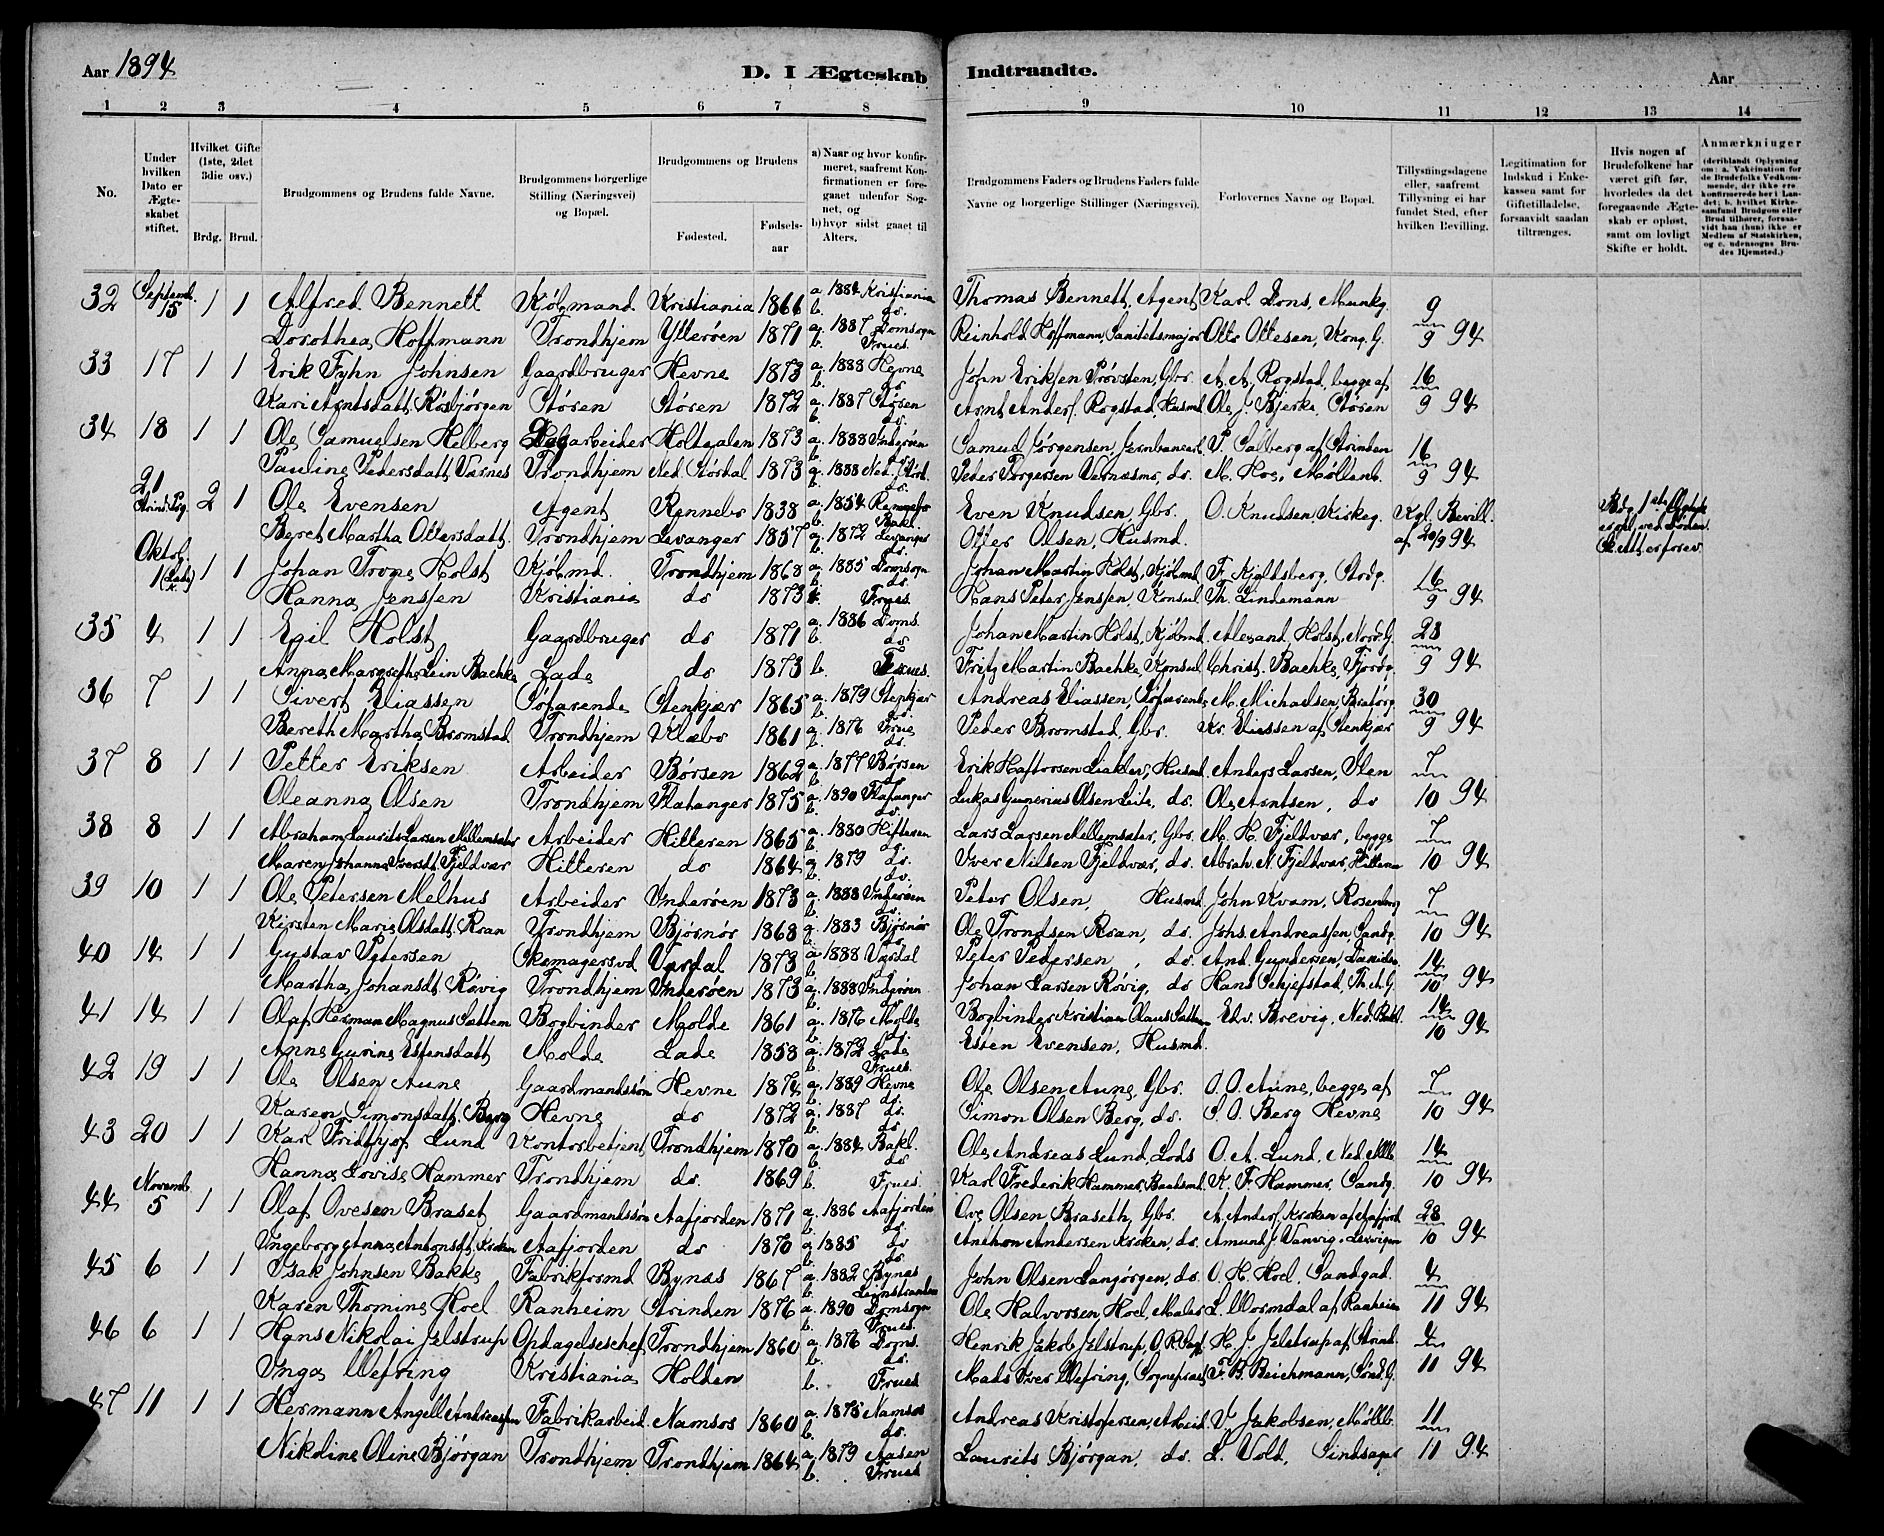 Aar 1894 D. I Ægteskab Indtraadte. Aar
1 2 3 4 5 6 7 8 9 10 11 12 13 14
No.
Under hvilken Dato er Ægteskabet stiftet.
Hvilket Gifte (1ste, 2det 3die osv.)
Brdg. Brud.
Brudgommens og Brudens fulde Navne.
Brudgommens borgerlige Stilling (Næringsvei) og Bopæl.
Brudgommens og Brudens
Fødested. Fødselsaar
a) Naar og hvor konfirmeret, saafremt Konfirmationen er foregaaet udenfor Sognet, og
b) hvor sidst gaaet til Alters.
Brudgommens Faders og Brudens Faders fulde Navne og borgerlige Stillinger (Næringsvei).
Forlovernes Navne og Bopæl.
Tillysningsdagene eller, saafremt Tillysning ei har fundet Sted, efter hvilken Bevilling.
Legitimation for Indskud i Enkekassen samt for Giftetilladelse, forsaavidt saadan tiltrænges.
Hvis nogen af Brudefolkene har været gift før, hvorledes da det foregaaende Ægteskab er opløst, samt om lovligt Skifte er holdt.
Anmærkninger
(deriblandt Oplysning om: a. Vakcination for de Brudefolks Vedkommende, der ikke ere konfirmerede her i Landet; b. hvilket Kirkesamfund Brudgom eller Brud tilhører, forsaavidt han (hun) ikke er Medlem af Statskirken, og c. udensogns Brudes Hjemsted.)
32 Septemb. 15 1 1 Alfred Bennett Kjøbmand Kristiania 1866 a 1884 Kristiania b. do. Thomas Bennett, Agent Karl Dons, Munkg. 9
Dorothea Hoffmann Trondhjem Ytterøen 1871 a. 1887 Domsogn b. Frues. Reinhold Hoffmann, Sanitetsmajor Otto Ottesen, Kong. G. 9 94
33 17 1 1 Erik Fyhn Johnsen Gaardbruger Hevne 1873 a. 1888 Hevne b. do John Eriksen Prøvsten, Gbr. A. A. Rogstad, begge af 16
Kari Arntsdatt. Røsbjørgen Støren Støren 1872 a. 1887 Støren b. do. Arnt Anders. Rogstad, Husmd Ole J. Bjerke, Støren 9 94
34 18 1 1 Ole Samuelsen Helberg Dagarbeider Holtaalen 1873 a. 1888 Inderøen b. do. Samuel Jørgensen, Jernbanearb. P. Salberg af Strinden 16
Pauline Pedersdatt. Værnes Trondhjem Ned. Stjørdal 1873 a. 1888 Ned. Stjørd. b. do. Peder Torgersen Værnesmo, do. M. Hoe, Møllenb. 9 94
21 Strind. Pg. 2 1 Ole Evensen Agent Rennebo 1838 a. 1854 Rennebo b. Bakl. Even Knudsen, Gbr. O. Knudsen, Kirkeg. Kgl. Bevill. Brdg. 1ste Ægtesk. er opl. ved Døden.
Beret Martha Ottersdatt. Trondhjem Levanger 1857 a. 1872 Levanger b. do. Otter Olsen, Husmd. af 20/9 94 Skifteatt. er forev.
Oktob. 1 (Lade K.) 1 1 Johan Trone Holst Kjøbmd. Trondhjem 1868 a. 1885 Domsogn b. do. Johan Martin Holst, Kjøbmd F. Kjeldsberg, Strdg. 16
Hanna Jenssen Kristiania do 1873 b. Frues. Hans Peter Jenssen, Konsul Th. Lindemann 9 94
35 4 1 1 Egil Holst Gaardbruger do 1871 a. 1886 Doms. b. do. Johan Martin Holst, Kjøbmd. Alexand. Holst, Nord. G. 23
Anna Margrethe Lein Bachke Lade do 1873 b. Frues. Fritz Martin Bachke, Konsul Christ. Bachke, Fjordg. 9 94
36 7 1 1 Sivert Eliassen Søfarende Stenkjær 1865 a. 1879 Stenkjær b. do. Andreas Eliassen, Søfarende M. Michaelsen, Bratørg. 30
Bereth Martha Bromstad Trondhjem Klæbo 1861 a. 1876 Frue b. do. Peder Bromstad, Gbr. Kr. Eliassen af Stenkjær 9 94
37 8 1 1 Petter Eriksen Arbeider Børsen 1862 a. 1877 Børsen b. do Erik Haftorsen Liaklev, Husmd. Anders Larsen, Ilen 7
Oleanna Olsen Trondhjem Flatanger 1875 a. 1890 Flatanger b. do. Lukas Gunerius Olsen Leite, do. Ole Arntsen, do 10 94
38 8 1 1 Abraham Laurits Larsen Mellemsæter Arbeider Hitteren 1865 a. 1880 Hitteren b. do. Lars Larsen Mellemsæter, Gbr. M. H. Fjeldvær, begge 7
Maren Johanna Iversdt. Fjeldvær Hitteren do 1864 a. 1879 do. b. do. Iver Nilsen Fjeldvær, do. Abrah. N. Fjeldvær, Hitteren 10 94
39 10 1 1 Ole Petersen Melhus Arbeider Inderøen 1873 a. 1888 Inderøen b. do. Peter Olsen, Husmd. John Kvam, Rosenborg 7
Kirsten Marie Olsdatt. Roan Trondhjem Bjørnør 1868 a. 1883 Bjørnør b. do Ole Trondsen Roan, do. Johs. Andreassen, Sandg. 10 94
40 14 1 1 Gustav Petersen Skomagersvd. Værdal 1873 a. 1888 Værdal b. do Peter Pedersen, do. And. Gundersen, 14
Martha Johansdt. Røvig Trondhjem Inderøen 1873 a. 1888 Inderøen b. do Johan Larsen Røvig, do Hans Schjefstad, Th. A. G. 10 94
41 14 1 1 Olaf Herman Magnus Sættem Bogbinder Molde 1861 a. 1876 Molde b. do. Bogbinder Kristian Olaus Sættem Edv. Brevig, Ned. Bakl. 14
Anne Gurine Estensdatt Molde Lade 1858 a. 1872 Lade b. Frues. Esten Evensen, Husmd. 10 94
42 19 1 1 Ole Olsen Aune Gaardmandssøn Hevne 1874 a. 1889 Hevne b. do. Ole Olsen Aune, Gbr. O. O. Aune, begge af 7
Karen Simonsdatt. Berg Hevne do 1872 a. 1887 do. b. do Simon Olsen Berg, do. S. O. Berg Hevne 10 94
43 20 1 1 Karl Fridthjof Lund Kontorbetjent Trondhjem 1870 a. 1884 Bakl. b. do Ole Andreas Lund, Lods O. A. Lund, Ned. Mllb. 14
Hanna Lovise Hammer Trondhjem do. 1869 b. Frues. Karl Frederik Hammer, Baadsmd. K. F. Hammer, Sandg. 10 94
44 Novemb. 5 1 1 Olaf Ovesen Braset Gaardmandssøn Aafjorden 1871 a. 1886 Aafjorden b. do. Ove Olsen Braseth, Gbr. A. Anders. Kroken af Aafjord 28
Ingeborg Anna Antonsdt. Kroken Aafjorden do 1870 a. 1885 do b. do. Anthon Andersen Kroken, do. Amund J. Vanvig, Lexvigen 10 94
45 6 1 1 Isak Johnsen Bakke Fabrikformd Bynæs 1867 a. 1882 Bynæs b. Leinstranden John Olsen Langørgen, do. O. H. Hoel, Sandgad. 4
Karen Thomine Hoel Ranheim Strinden 1876 a. 1890 Domsogn b. Frues. Ole Halvorsen Hoel, Maler L. Wormdal af Ranheim 11 94
46 6 1 1 Hans Nikolai Jelstrup Opdagelseschef Trondhjem 1860 a. 1876 Doms. b. do. Henrik Jakob Jelstrup, O.R.Sagf. H. J. Jelstrup af Strind. 4
Inga Wefring Kristiania Holden b. Frues Mads Iver Wefring, Sognepræst F. B. Beichmann, Sønd. G. 11 94
47 11 1 1 Hermann Angell Andreassen Fabrikarbeid. Namsos 1860 a. 1875 Namsos b. do. Andreas Kristofersen, Arbeid. V. Jakobsen, Møllb. 11
Nikoline Oline Bjørgan Trondhjem Trondhjem 1864 a. 1879 Aasen b. Frues Laurits Bjørgan, do. L. Vold, 11 94